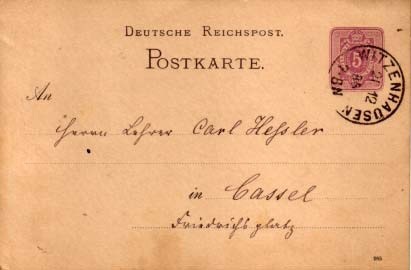 DEUTSCHE REICHSPOST.
POSTKARTE.
5
WITZENHAUSEN
12
An
Herrn Lehrer Carl Hessler
in Cassel
Friedrichsplatz